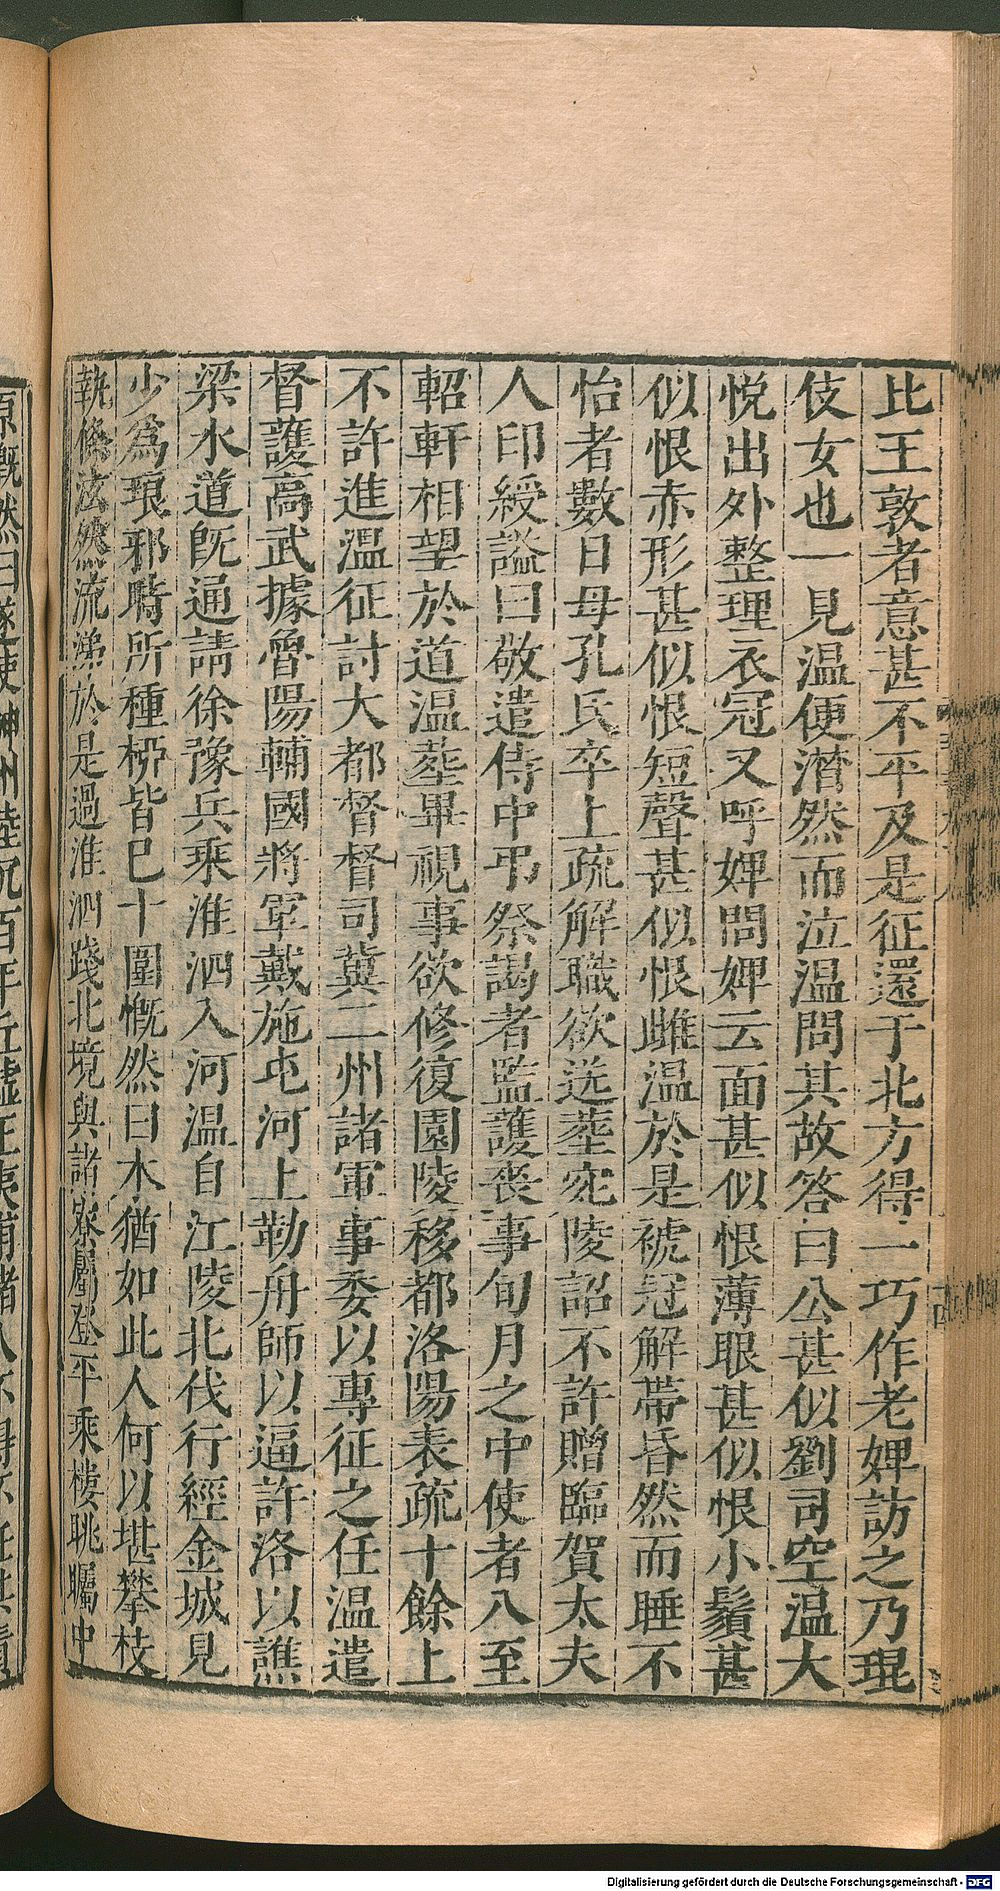 比王敦者意甚不平及是征還于北方得一巧作老婢訪之乃琨
伎女也一見温便潸然而泣温問其故答曰公甚似劉司空温大
悅出外整理衣冠又呼婢問婢云面甚似恨薄眼甚似恨小鬚甚
似恨赤形甚似恨短聲甚似恨雌温於是褫冠解帶昏然而睡不
怡者數日母孔氏卒上疏解職欲送葬宛陵詔不許贈臨賀太夫
人印綬謚曰敬遣侍中弔祭謁者監護喪事旬月之中使者八至
軺軒相望於道温葬畢視事欲修復園陵移都洛陽表疏十餘上
不許進温征討大都督督司冀二州諸軍事委以專征之任温遣
督護高武據魯陽輔國將軍戴施屯河上勒舟師以逼許洛以譙
梁水道旣通請徐豫兵乘淮泗入河温自江陵北伐行經金城見
少為琅邪時所種桺皆已十圍慨然曰木猶如此人何以堪攀枝
執條泫然流涕於是過淮泗踐北境與諸寮屬登平乘樓眺矚中
原慨然曰遂使神州陸沉百年丘墟王夷甫諸人不得不任其責
Digitalisierung gefördert durch die Deutsche Forschungsgemeinschaft - DFG